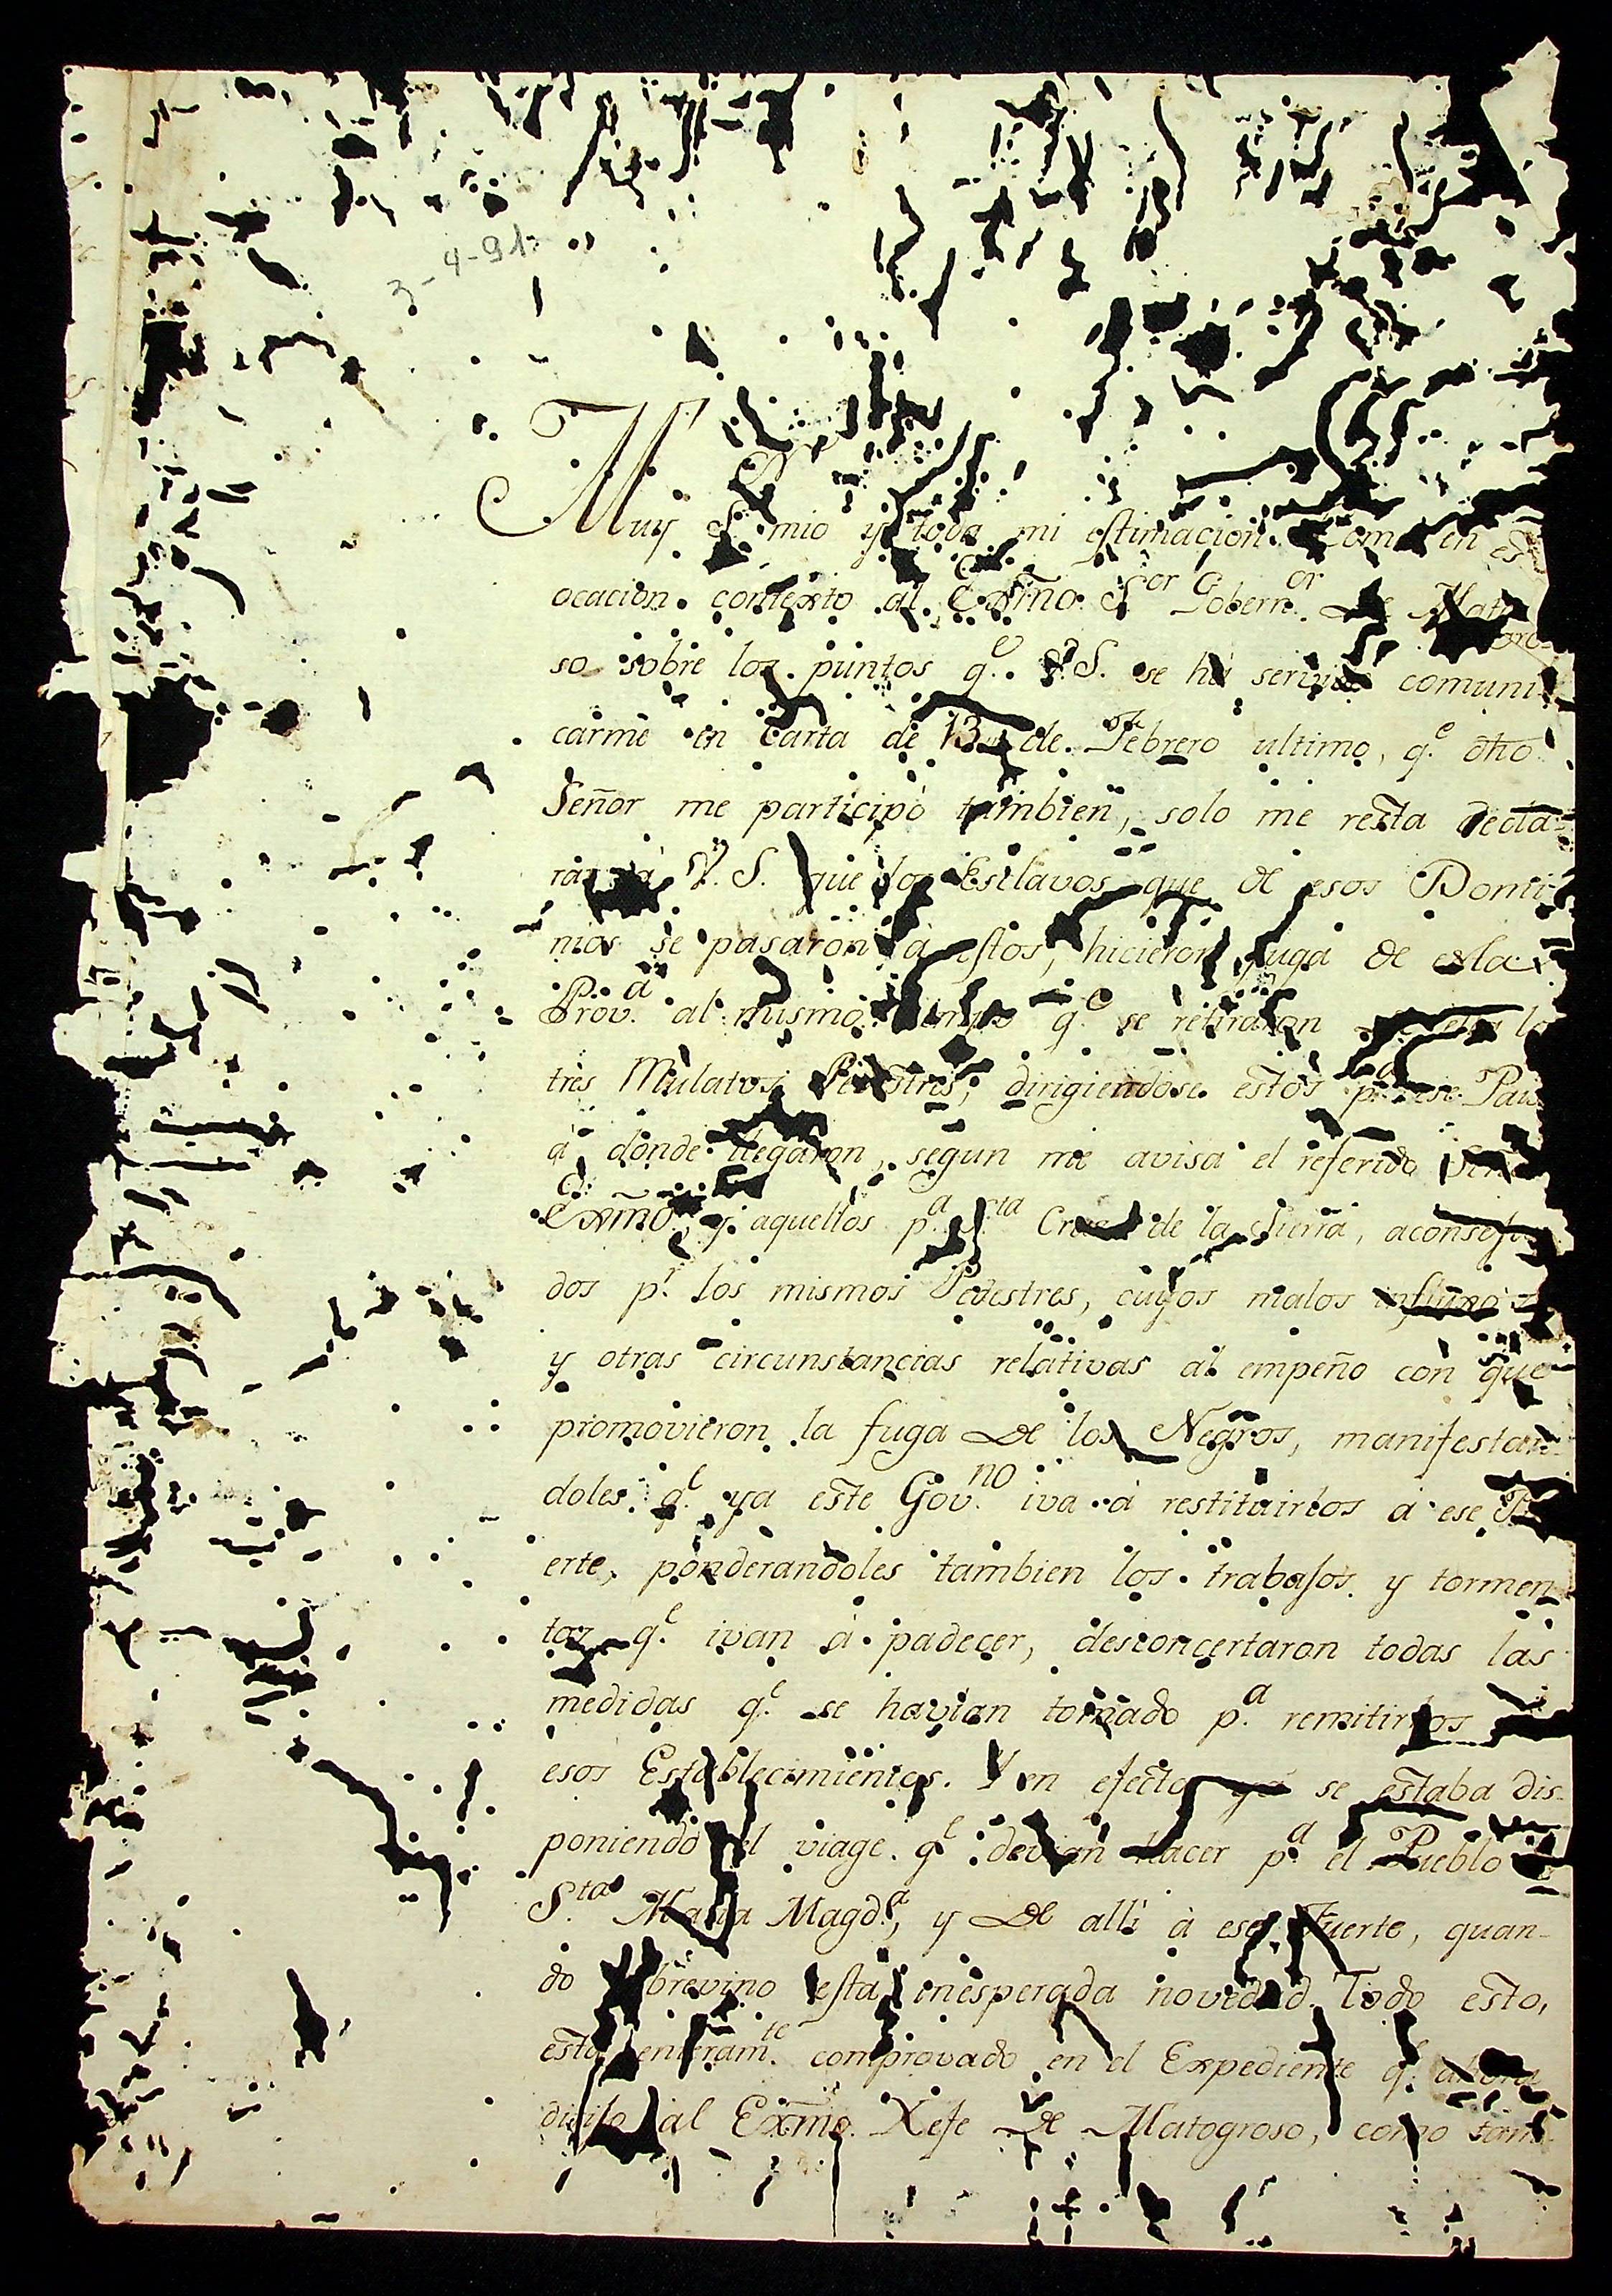 3-4-91
Muy S.r mio y toda mi estimacion. Como en es
ocacion contexto al Exmo. S.or Gobern.or de Mato
gro-
so sobre los puntos q.e V.S. se há servido comuni
carme en carta de 13 de Febrero ultimo, q.e dho
Señor me participó tambien, solo me resta decla-
rar à V.S. que los Esclavos que de esos Domi
nios se pasaron à estos, hicieron fuga de esta
Prov.a al mismo tiempo q.e se retiraron
tres Mulatos Pedestres, dirigiendose estos p.a ese Pais
à donde llegaron, segun me avisa el referido Señ
Exmo., y aquellos p.a S.ta Cruz de la Sierra, aconseja
dos p.r los mismos Pedestres, cuyos malos influxos
y otras circunstancias relativas al empeño con que
promovieron la fuga de los Negros, manifestan
doles q.e ya este Gov.no iva à restituirlos à ese Fu
erte, ponderandoles tambien los trabajos y tormen
tos q.e ivan à padecer, desconcertaron todas las
medidas q.e se havian tomado p.a remitirlos
esos Establecimientos. Y en efecto ya se estaba dis-
poniendo el viage q.e devian hacer p.a el Pueblo
S.ta Maria Magd.a, y de alli à ese Fuerte, quan-
do sobrevino esta inesperada novedad. Todo esto,
está enteram.te comprovado en el Expediente q.e ahora
dirijo al Exmo. Xefe de Matogroso, como tam-